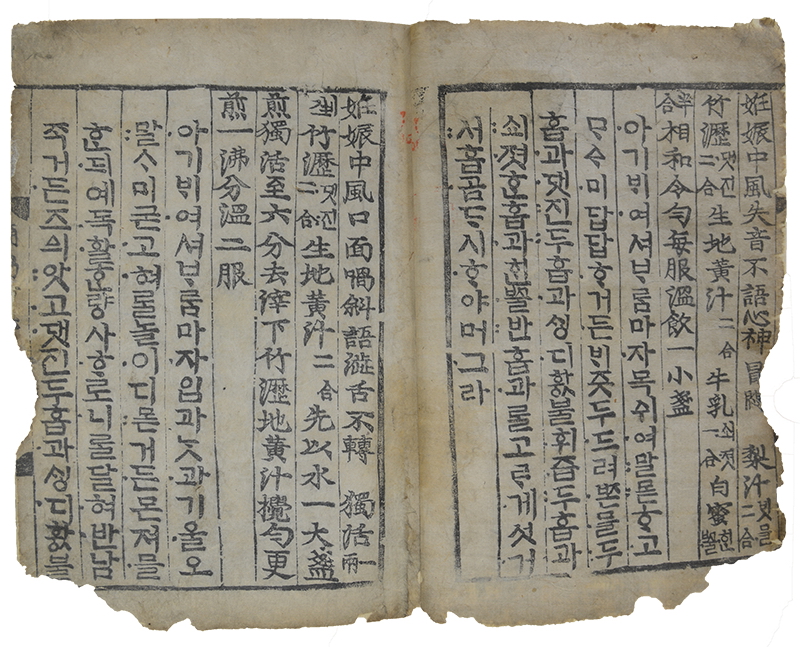 妊娠中風失音不語心神冒悶 梨汁ᄇᆡᆺ믈二合
竹瀝댓진二合 生地黃汁二合 牛乳쇠졋一合 白蜜ᄒᆡᆫᄢᅮᆯ
半合相和令勻每服溫飮一小盞
아기ᄇᆡ여셔ᄇᆞᄅᆞᆷ마자목쉬여말몯ᄒᆞ고
ᄆᆞᅀᆞ미답답ᄒᆞ거든ᄇᆡ즛두드려ᄧᅩᆫ믈두
홉과댓진두홉과ᄉᆡᇰ디홧불휘즙두홉과
쇠졋ᄒᆞᆫ홉과ᄒᆡᆫᄢᅮᆯ반홉과ᄅᆞᆯ고ᄅᆞ게섯거
서홉곰ᄃᆞ시ᄒᆞ야머그라
妊娠中風口面喎斜語澁舌不轉 獨活一兩
生竹瀝댓진二合 生地黃汁二合 先以水一大盞
煎獨活至六分去滓下竹瀝地黃汁攪勻更
煎一沸分溫二服
아기ᄇᆡ여셔ᄇᆞᄅᆞᆷ마자입과ᄂᆞᆺ과기울오
말ᄉᆞ미굳고혀를놀이디몯거든몬져믈
ᄒᆞᆫ되예독활ᄒᆞᆫ량사ᄒᆞ로니ᄅᆞᆯ달혀반남
죽거든즈ᅀᅴ앗고댓진두홉과ᄉᆡᇰ디홧불